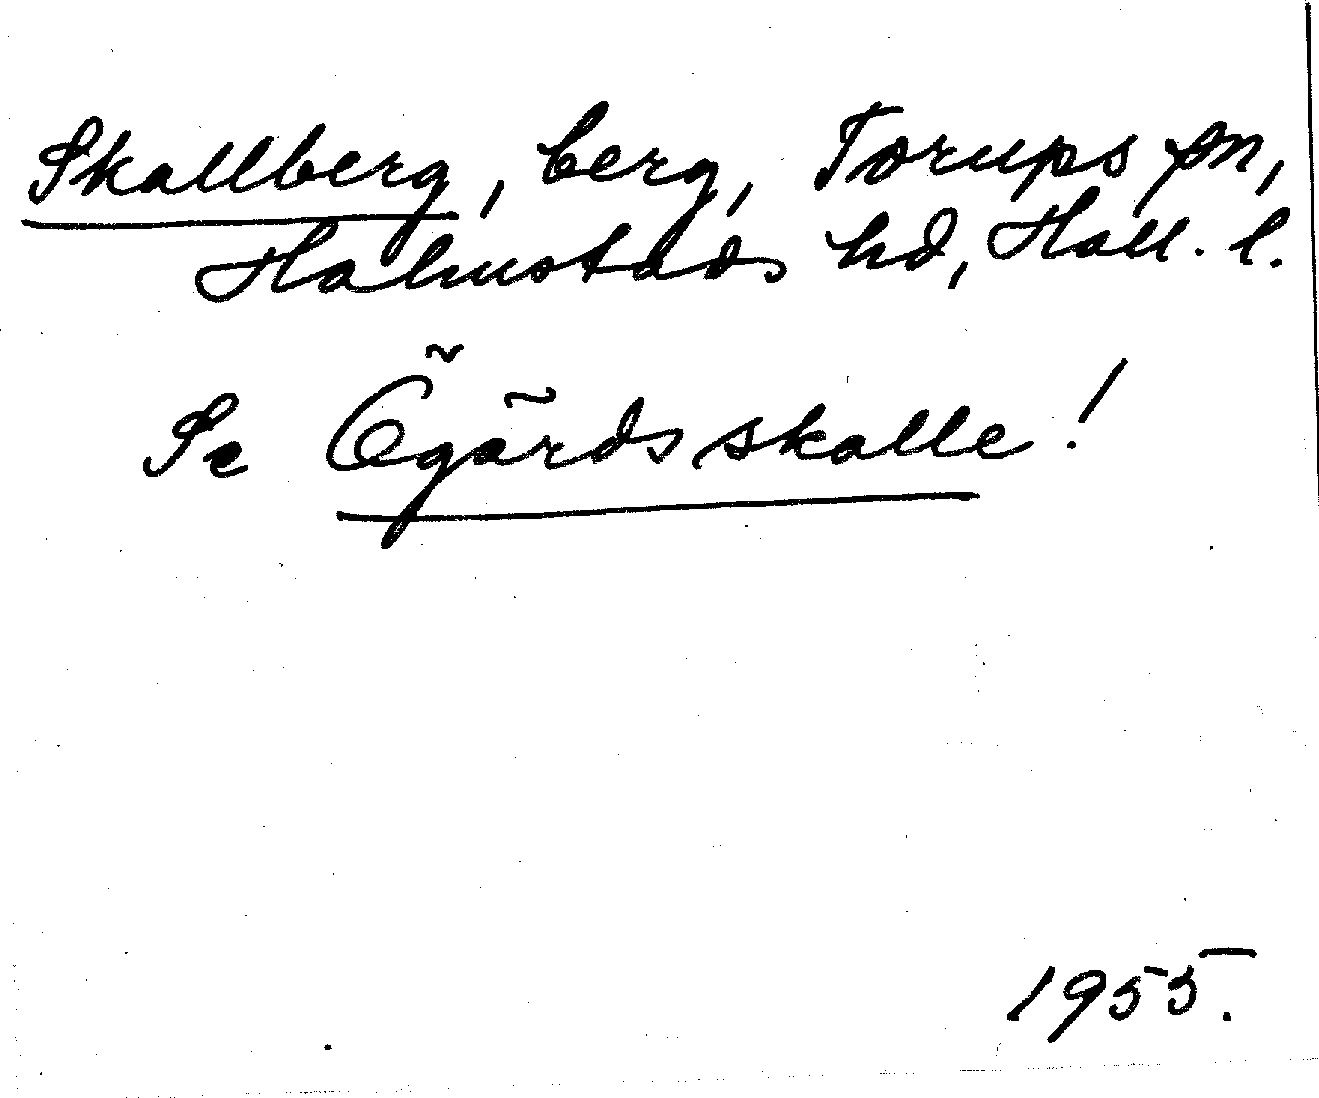 Skallberg, berg, Torups sn,
Halmstads hd, Hall. l.
Se Ögärdsskalle!
1955.